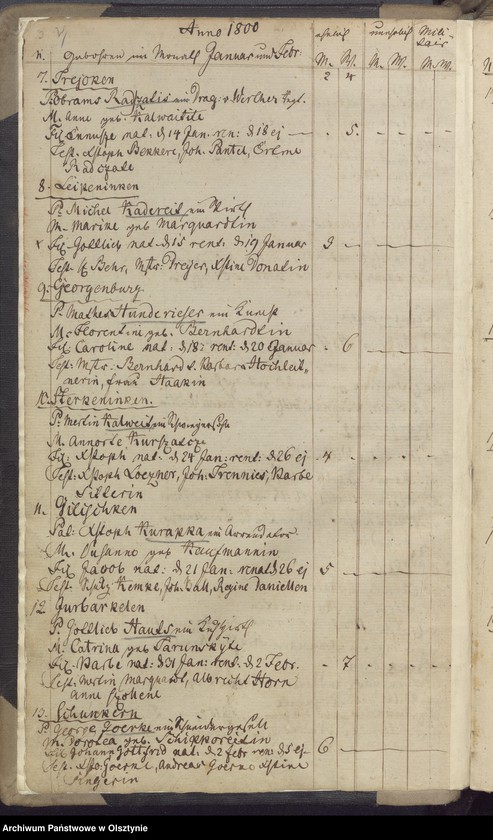 Anno 1800
ehelich unehelich Militair
N. gebohren im Monath Januar und Febr. M. W. M. W. M. W.
2 4
7. Trejoken
P. Abrams Radzatis ein Drag: v Werther Regt.
M. Anne geb. Kalwaitite
Fil. Ennuße nat: d 14 Jan. ren: d 18 ej — - 5. - - - -
Test. Xstoph Bekkere, Joh. Pantel, Ereme
Radczate
8. Leipeninken
P. Michel Kadereit ein Wirth
M. Marike geb Marquardtin
Fil. Gottlieb nat: d 15 rent. d 19 Januar 3
Test. Behr, Mstr: Dreyer, Xstine Donatin
9. Georgenburg
P. Mathes Hunderieser ein
M. Florentine geb. Bernhardtin
Fil. Caroline nat: d 18 rent: d 20 Januar - 6
Test: Mstr: Bernhard v. Barbara Hochleit„
nerin, frau Haakin
10. Sterkeninken.
P. Merlin Kalweit ein
M. Annorte Kurszatcze
Fil. Xstoph nat. d 24 Jan: rent: d 26 ej 4 - - - - -
Test: Xstoph Loepner, Joh: Trennies, Barbe
Sillerin
11. Gillischken
Pat: Xstoph Kurapka ein Arrendator
M. Susanne geb Kaufmannin
Fil. Jacob nat: d 21 Jan: renat d 26 ej 5
Test. Kemke, Joh. Ball, Regine Daniellen
12. Gurbarkelen
P. Gottlieb Hauls ein
M. Catrina geb Tarunskyte
Fil. Barbe nat: d 31 Jan: rent. d 2 Febr. - 7 - - - -
Test. Merlin Marquart, Albrecht Horn
Anne
13. Schunkern
P. George Goerke ein Schneidergesell
M. Dorotea geb: Schipporeitin
Fil. Johann Gottfried nat: d 2 febr ren: d 5 ej 6
Test. Xsto: Goerke, Andreas Goerke Xstine
Singerin
Archiwum Państwowe w Olsztynie